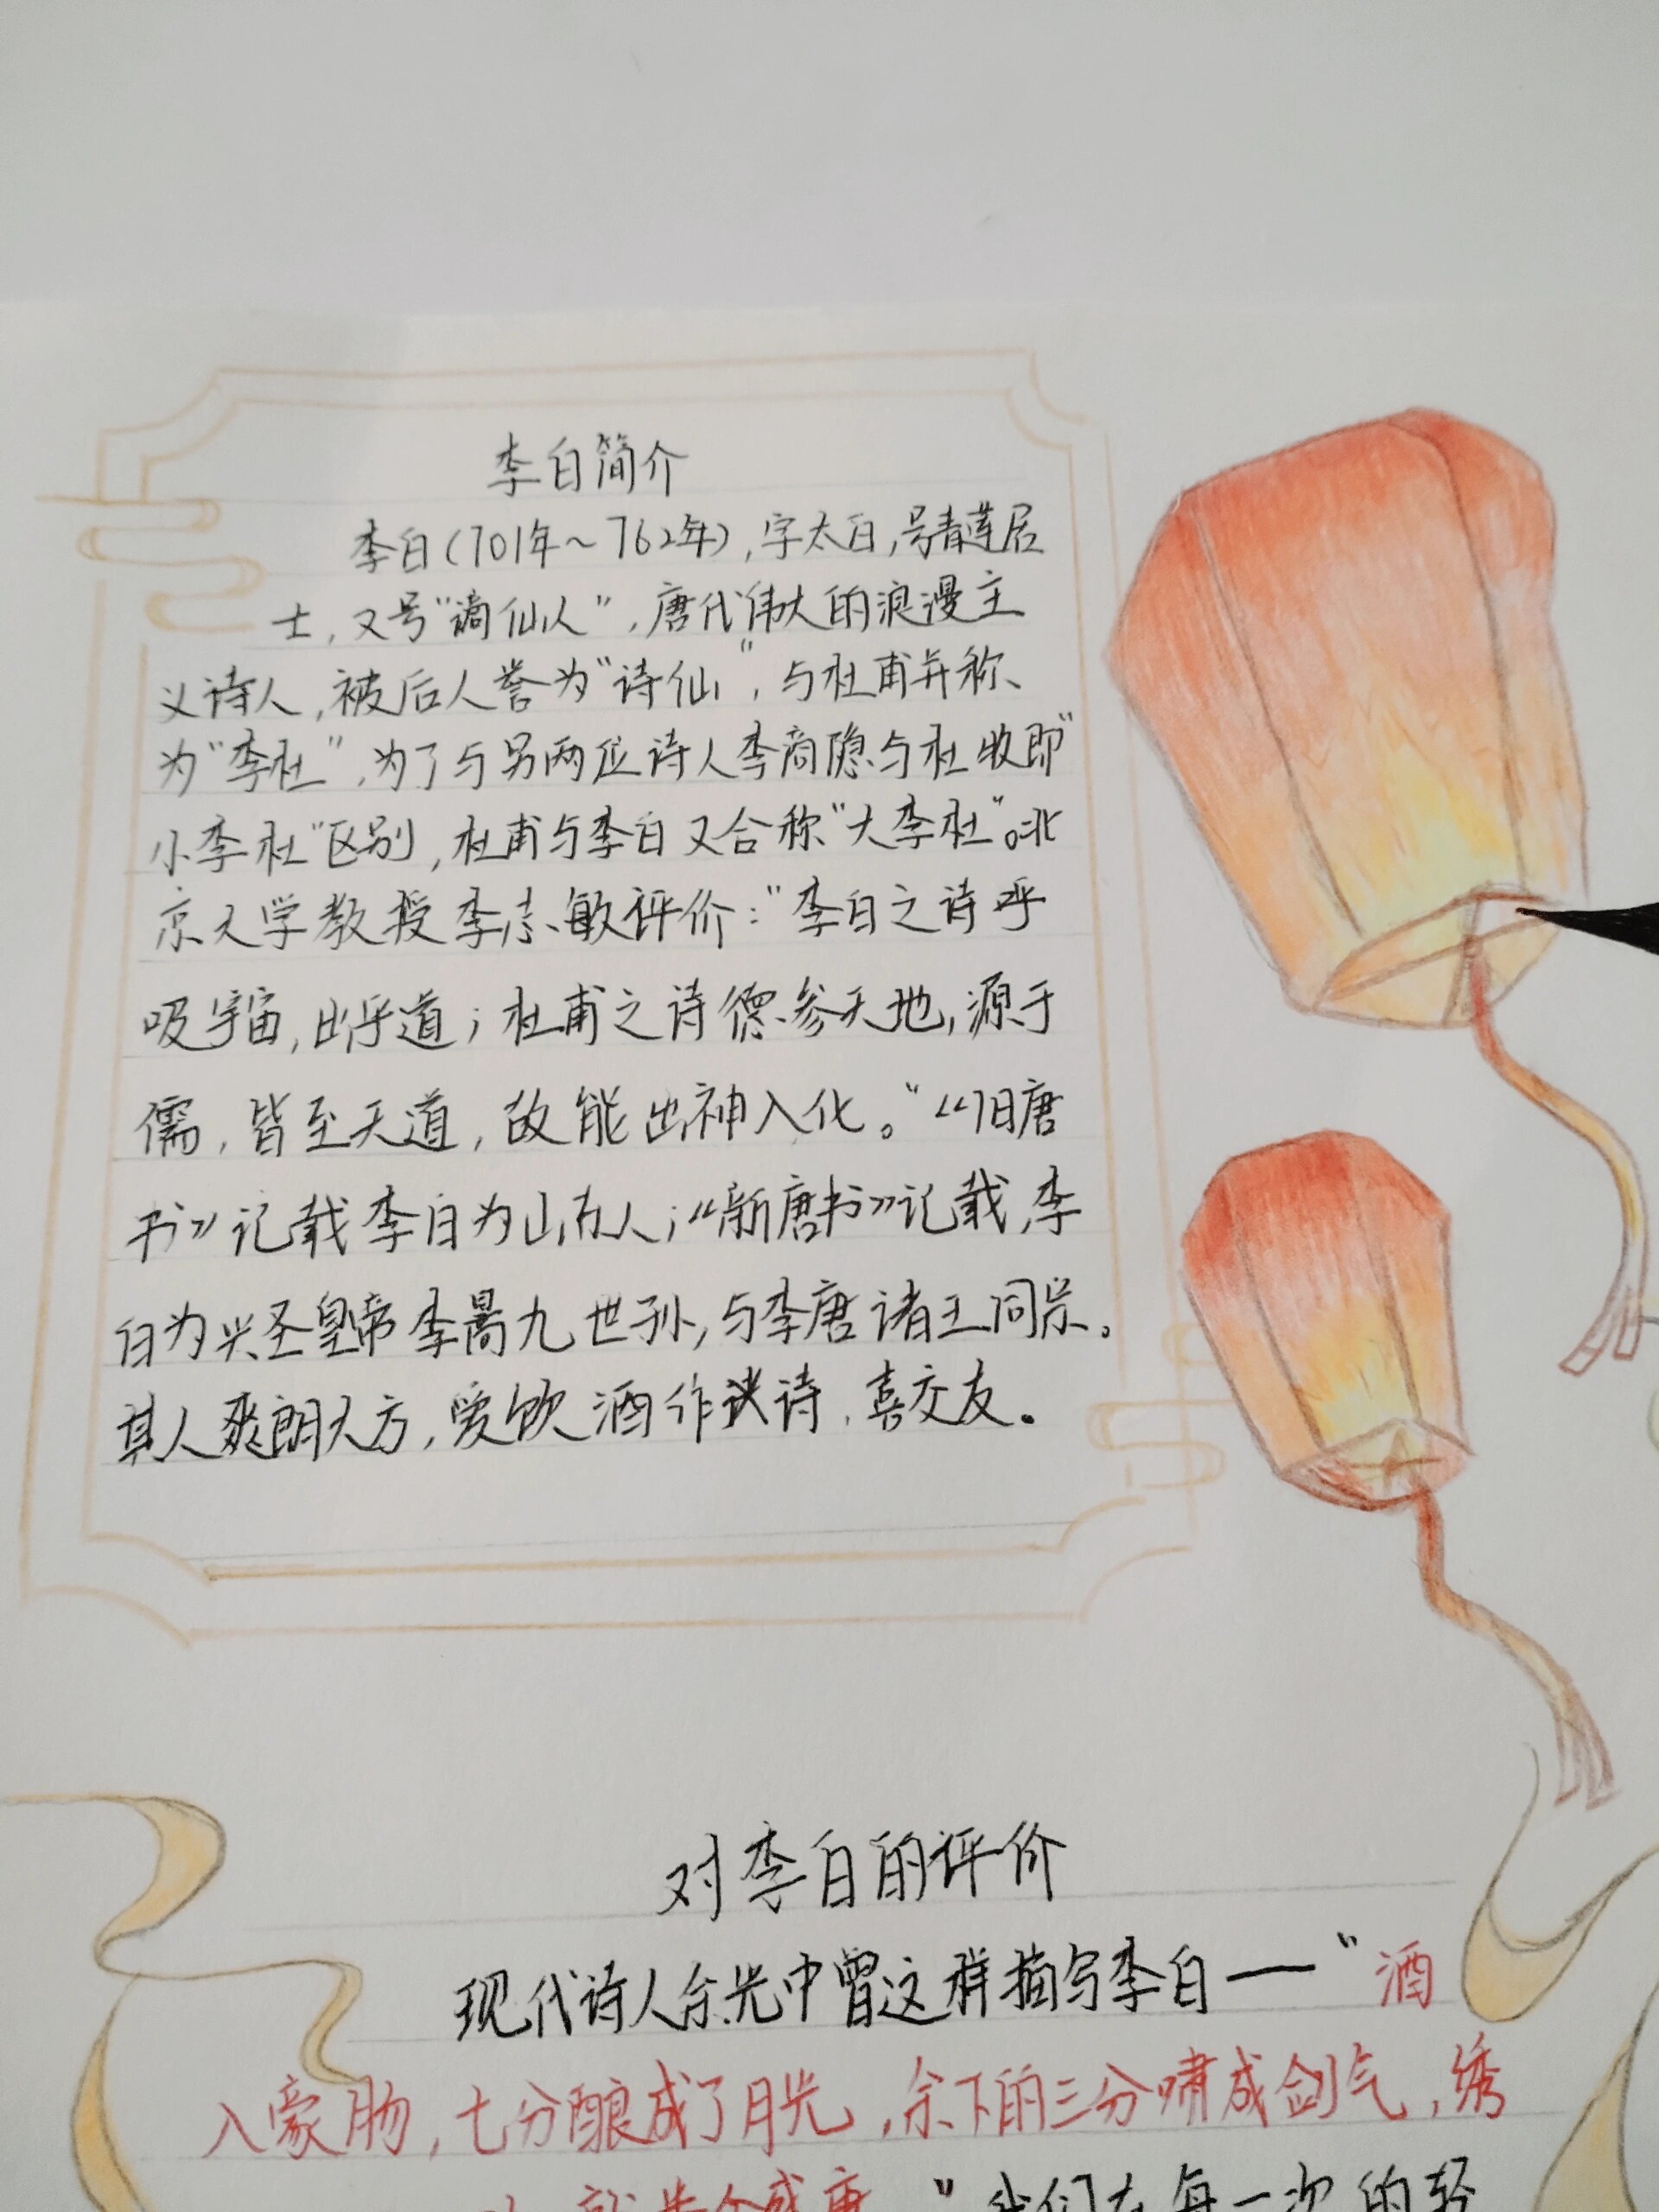 李白简介
李白(701年~762年),字太白,号青莲居
士,又号“谪仙人”,唐代伟大的浪漫主
义诗人,被后人誉为“诗仙”,与杜甫并称
为“李杜”,为了与另两位诗人李商隐与杜牧即“
小李杜”区别,杜甫与李白又合称“大李杜”。北
京大学教授李志敏评价:“李白之诗呼
吸宇宙,出乎道;杜甫之诗德参天地,源于
儒,皆至天道,故能出神入化。”《旧唐
书》记载李白为山东人;《新唐书》记载,李
白为兴圣皇帝李暠九世孙,与李唐诸王同宗。
其人爽朗大方,爱饮酒作诗,喜交友。
对李白的评价
现代诗人余光中曾这样描写李白——“酒
入豪肠,七分酿成了月光,余下的三分啸成剑气,绣
就半个盛唐。”我们在每一次的轻